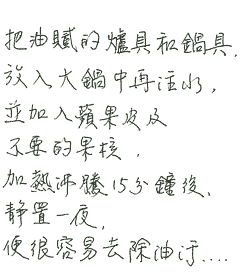 把油膩的爐具和鍋具,
放入大鍋中再注水,
並加入蘋果皮及
不要的果核,
加熱沸騰15分鐘後,
靜置一夜,
便很容易去除油汙....